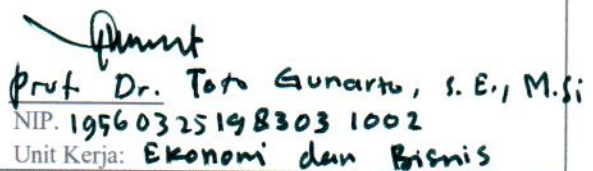 Prof Dr. Toto Gunarto, S. E., M.Si
NIP. 19560325198303 1002
Unit Kerja: Ekonomi dan Bisnis